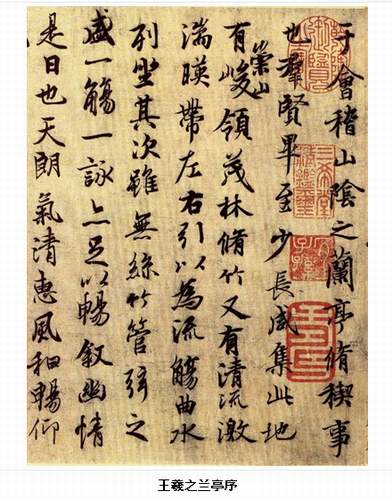 于會稽山陰之蘭亭脩稧事
也羣賢畢至少長咸集此地
有崇山峻領茂林脩竹又有清流激
湍暎帶左右引以為流觴曲水
列坐其次雖無絲竹管弦之
盛一觴一詠亦足以暢叙幽情
是日也天朗氣清惠風和暢仰
王羲之兰亭序